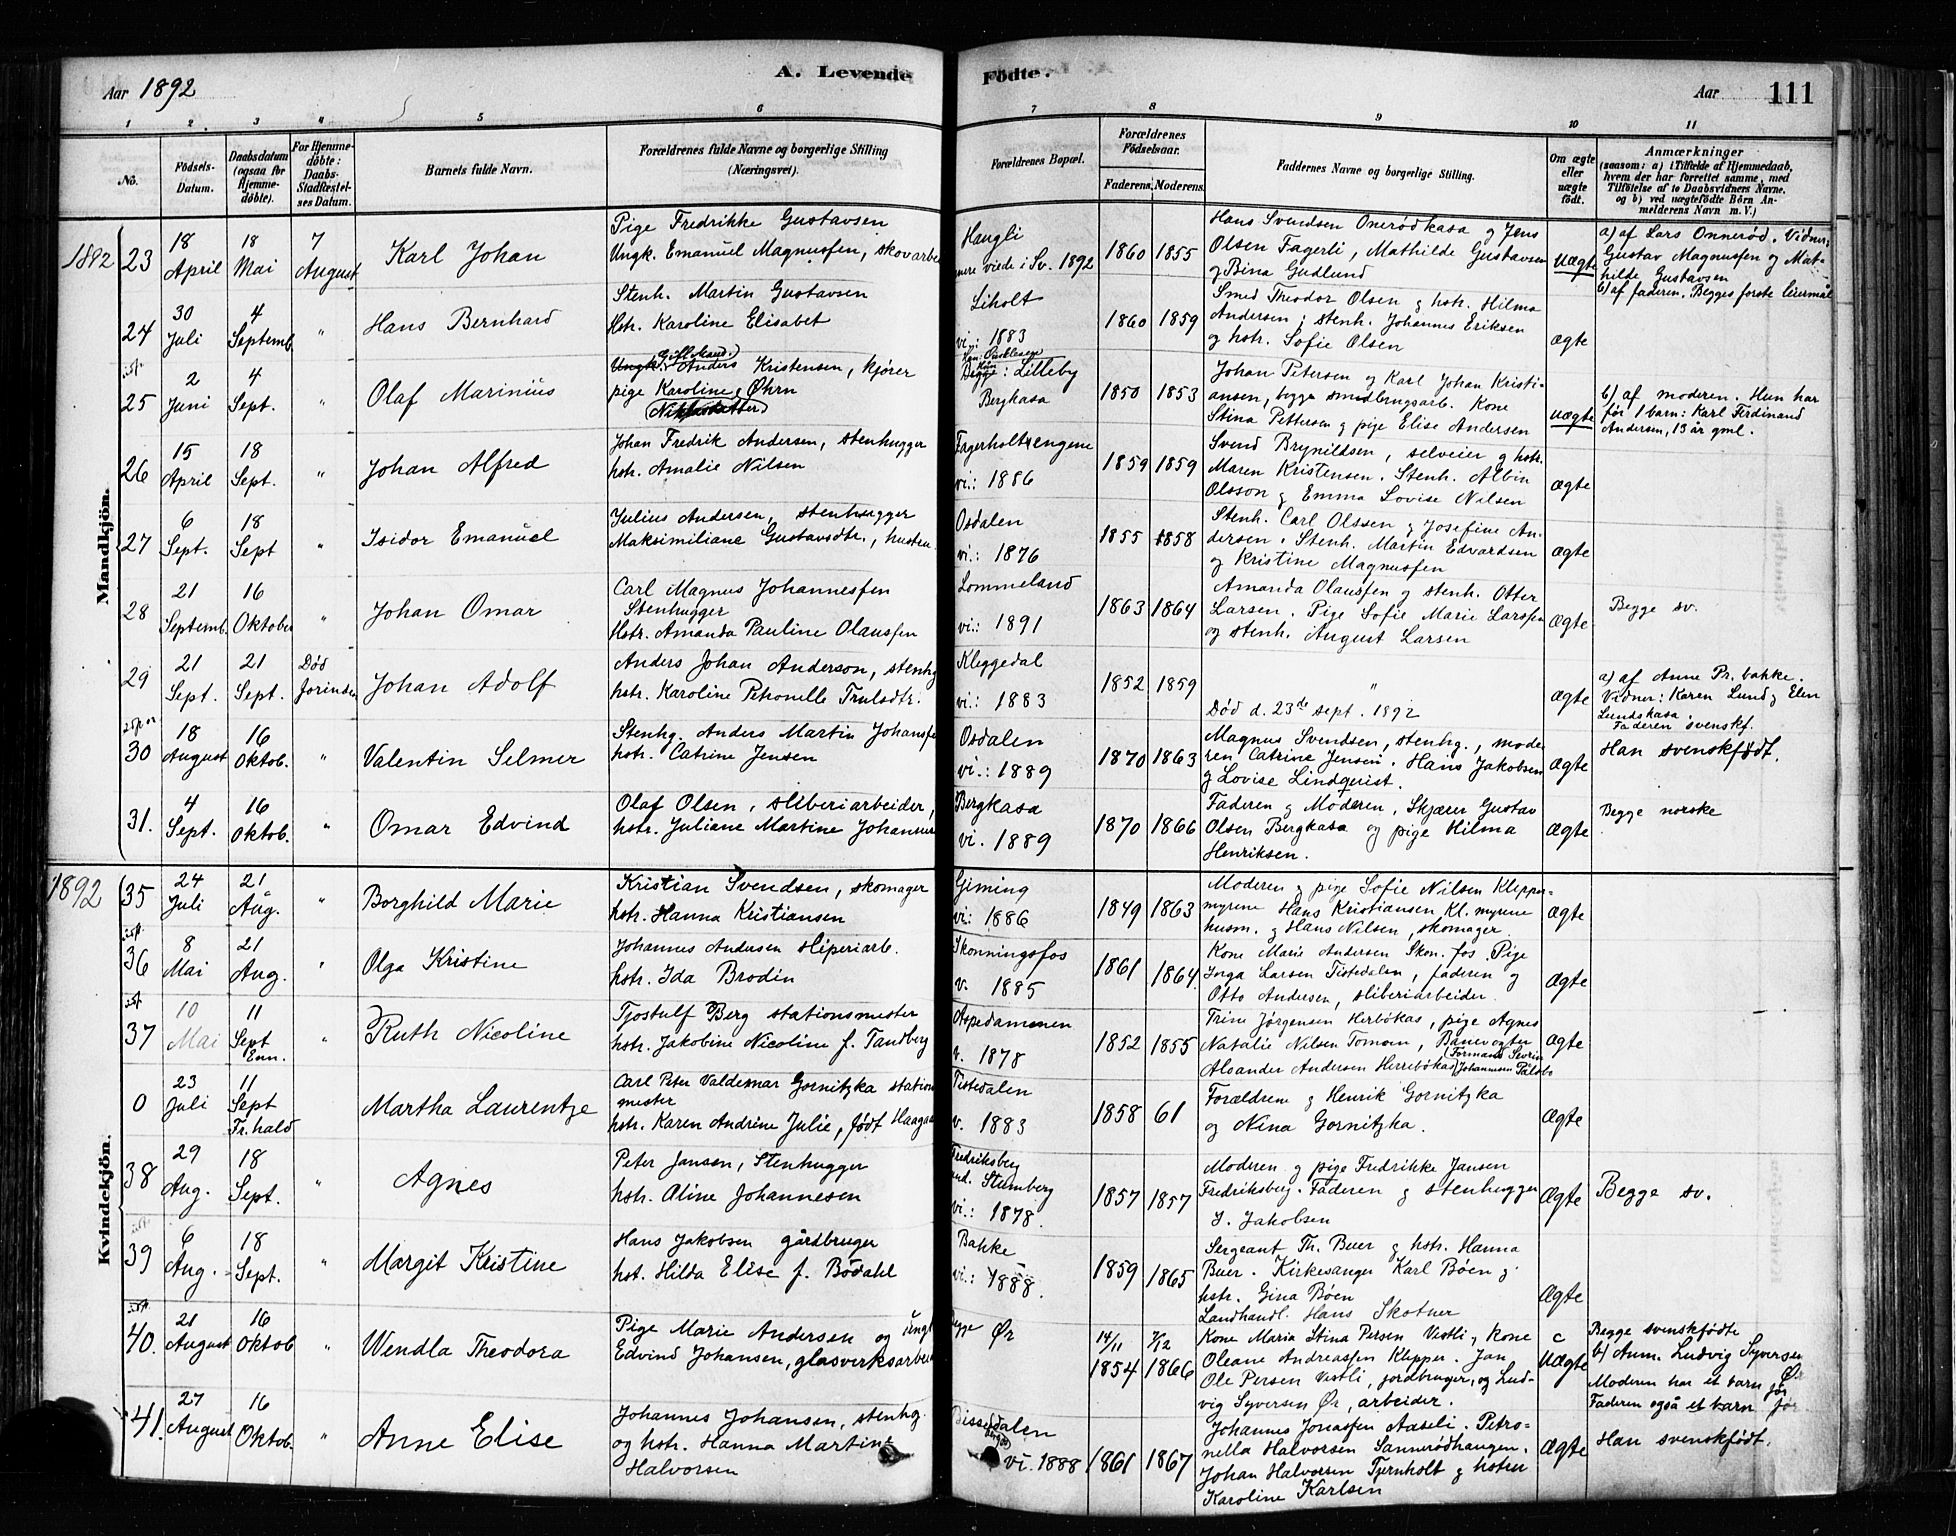 A. Levende Födte.
Aar 1892
Aar 111
1 2. 3 " 5 6 7 8 9 10 11
No.
Födsels-Datum.
Daabsdatum (ogsaa for Hjemmedöbte).
For Hjemmedöbte: Daabs-Stadfæstelses Datum.
Barnets fulde Navn.
Forældrenes fulde Navne og borgerlige Stilling (Næringsvei).
Forældrenes Bopæl.
Forældrenes Födselsaar.
Faderens. Moderens.
Faddernes Navne og borgerlige Stilling.
Om ægte eller uægte födt.
Anmærkninger (saasom: a) i Tilfælde af Hjemmedaab, hvem der har forrettet samme, med Tilföielse af to Daabsvidners Navne, og b) ved uægtefödte Börn Anmelderens Navn m. V.)
Mandkjön.
1892 23 18 April 18 Mai 7 August Karl Johan
Pige Fredrikke Gustavsen
Ungk. Emanuel Magnussen, skovarbe
Haugli
viede i Sv. 1892
1860 1855
Hans Svendsen Onerødkasa og Jens
Olsen Fagerli, Mathilde Gustavsen
og Bina Gudlund
Uægte
a) af Lars Onnerød. Vidner:
Gustav Magnusen og Mathilde Gustavsen
b) af faderen. Begges første leiermål
24 30 Juli 4 Septemb. " Hans Bernhard
Stenh. Martin Gustavsen
Hstr. Karoline Elisabet
Liholt
vi.: 1883
1860 1859
Smed Theodor Olsen g hstr. Hilma
Andersen; stenh. Johannes Eriksen
og hstr. Sofie Olsen
ægte
25 2 Juni 4 Sept. " Olaf Marinius
Ungk. Anders Kristensen, kjører
pige Karoline Øhrn
: Lilleby
Bergkasa
1850 1853
Johan Petersen og Karl Johan Kristiansen, begge smedbrugsarb. Kone
Stina Pettersen g pige Elise Andersen
uægte
b) af moderen. Hun har
før 1 barn: Karl Ferdinand
Andersen, 13 år gml.
26 15 April 18 Sept. " Johan Alfred
Johan Fredrik Andersen, stenhugger
hstr. Amalie Nilsen
Fagerholtrengene
vi.: 1886
1859 1859
Svend Brynildsen, selveier g hstr.
Maren Kristensen. Stenh. Albin
Olsson g Emma Lovise Nilsen
ægte
27 6 Sept. 18 Sept " Isidor Emanuel
Julius Andersen, stenhugger
Maksimiliane Gustavsdtr., hustru
Osdalen
vi.: 1876
1855 1858
Stenh. Carl Olssen g Josefine Andersen. Stenh. Martin Edvardsen
og Kristine Magnussen
ægte
28 21 Septemb. 16 Oktober " Johan Omar
Carl Magnus Johannessen
Stenhugger
Hstr. Amanda Pauline Olaussen
Lommeland
vi.: 1891
1863 1864
Amanda Olaussen og stenh. Otter
Larsen. Pige Sofie Marie Larssen
og stenh. August Larsen
Ægte
Begge sv.
29 21 Sept. 21 Sept. Død Johan Adolf
Anders Johan Anderson, stenhg
hstr. Karoline Petronelle Trulsdtr.
Kleggedal
vi.: 1883
1852 1859
"
Død d. 23de sept. 1892
ægte
a) af Anne Pr. bakke.
Vidner: Karen Lund g Elen
Lundskasa.
Faderen svenskf.
30 18 August 16 Oktob. " Valentin Selmer
Stenhg. Anders Martin Johansse
hstr. Catrine Jensen
Osdalen
vi.: 1889
1870 1863
Magnus Svendsen, stenhg., moderen Catrine Jensen. Hans Jakobsen
g Lovise Lindqvist.
Ægte
Han svenskfødt.
31. 4 Sept. 16 Oktob. " Omar Edvind
Olaf Olsen, sliberiarbeider,
hstr. Juliane Martine Johansen
Bergkasa
vi. 1889
1870 1866
Faderen g Moderen, Skjærer Gustav
Olsen Bergkasa og pige Hilma
Henriksen.
Ægte
Begge norske
Kvindekjön.
1892 35 24 Juli 21 Aug. " Borghild Marie
Kristian Svendsen, skomager
hstr. Hanna Kristiansen
Giming
vi: 1886
1849 1863
Moderen g pige Sofie Nilsen Kleppermyrene Hans Kristiansen, Kl. myrene
husm. g Hans Nilsen, skomager.
Ægte
36 8 Mai 21 Aug. " Olga Kristine
Johannes Andersen sliperiarb.
hstr. Ida Brodin
Skonningsfos
v. 1885
1861 1864
Kone Marie Andersen Skon. fos. Pige
Inga Larsen Tistedalen, faderen og
Otto Andersen, sliberiarbeider.
Ægte
37 10 Mai 11 Sept Enn. " Ruth Nicoline
Tjostulf Berg stationsmester
hstr. Jakobine Nicoline f. Tandberg
Aspedammen
v. 1878
1852 1855
Trine Jørgensen Herbøkas, pige Agnes
Natalie Nilsen Tomom, Banevogter
Alsander Andersen Herrebøkas
Ægte
0 23 Juli 11 Sept Fr.hald Martha Laurentze
Carl Peter Valdemar Gornitzka stationmester
hstr. Karen Andrine Julie, født Haaga
Tistedalen
v. 1883
1858 61
Forældrene g Henrik Gornitzka
og Nina Gornitzka.
Ægte
38 29 Aug. 18 Sept. " Agnes
Peter Jansen, Stenhugger
hstr. Aline Johannesen
Fredriksberg
und. Stumberg
vi.: 1878.
1857 1857
Moderen g pige Fredrikke Jansen
Fredriksberg. Faderen g stenhugger
J. Jakobsen
Ægte
Begge sv.
39 6 Aug. 18 Sept. " Margit Kristine
Hans Jakobsen gårdbruger
hst. Hilda Elise f. Bødahl
Bakke
vi.: 1888.
1859 1865
Sergeant Th. Buer g hstr. Hanna
Buer. Kirkesanger Karl Bøen g
hstr. Gina Bøen
Landhandl. Hans Skotner
Ægte
40. 21 August 16 Oktob " Wendla Theodora
Pige Marie Andersen og ungk
Edvind Johansen, glasverksarbei
Begge Ør
14/11 1854 7/12 1866
Kone Maria Stina Persen Vestli, g kone
Oleane Andreassen Klepper. Jan
Ole Persen Vestli, jordbruger, og Ludvig Syversen Ør, arbeider.
Uægte
Begge svenskfødte
b) Anm. Ludvig Syversen Ør
Moderen har et barn før
Faderen også et barn før
41. 27 August 16 Oktob. " Anne Elise
Johannes Johansen, stenhg.
og hstr. Hanna Martine
Halvorsen
Bissedalen
vi. 1888
1861 1867
Johannes Jonassen Aaseli. Petronella Halvorsen Sannerødhaugen.
Johan Halvorsen Tjernholt g hstru
Karoline Karlsen
Ægte
Han svenskfødt.